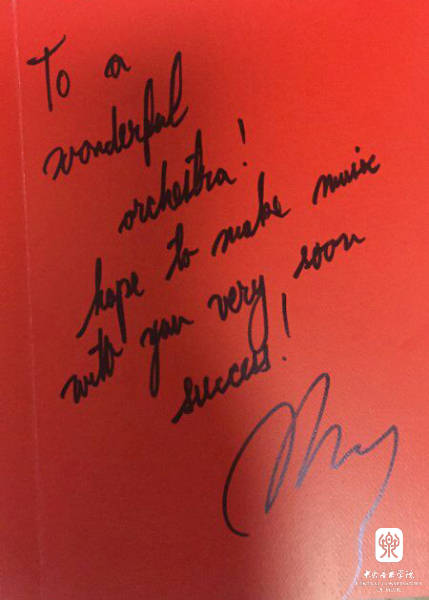 To a
wonderful
orchestra!
hope to make music
with you very soon
success!
中央音乐学院